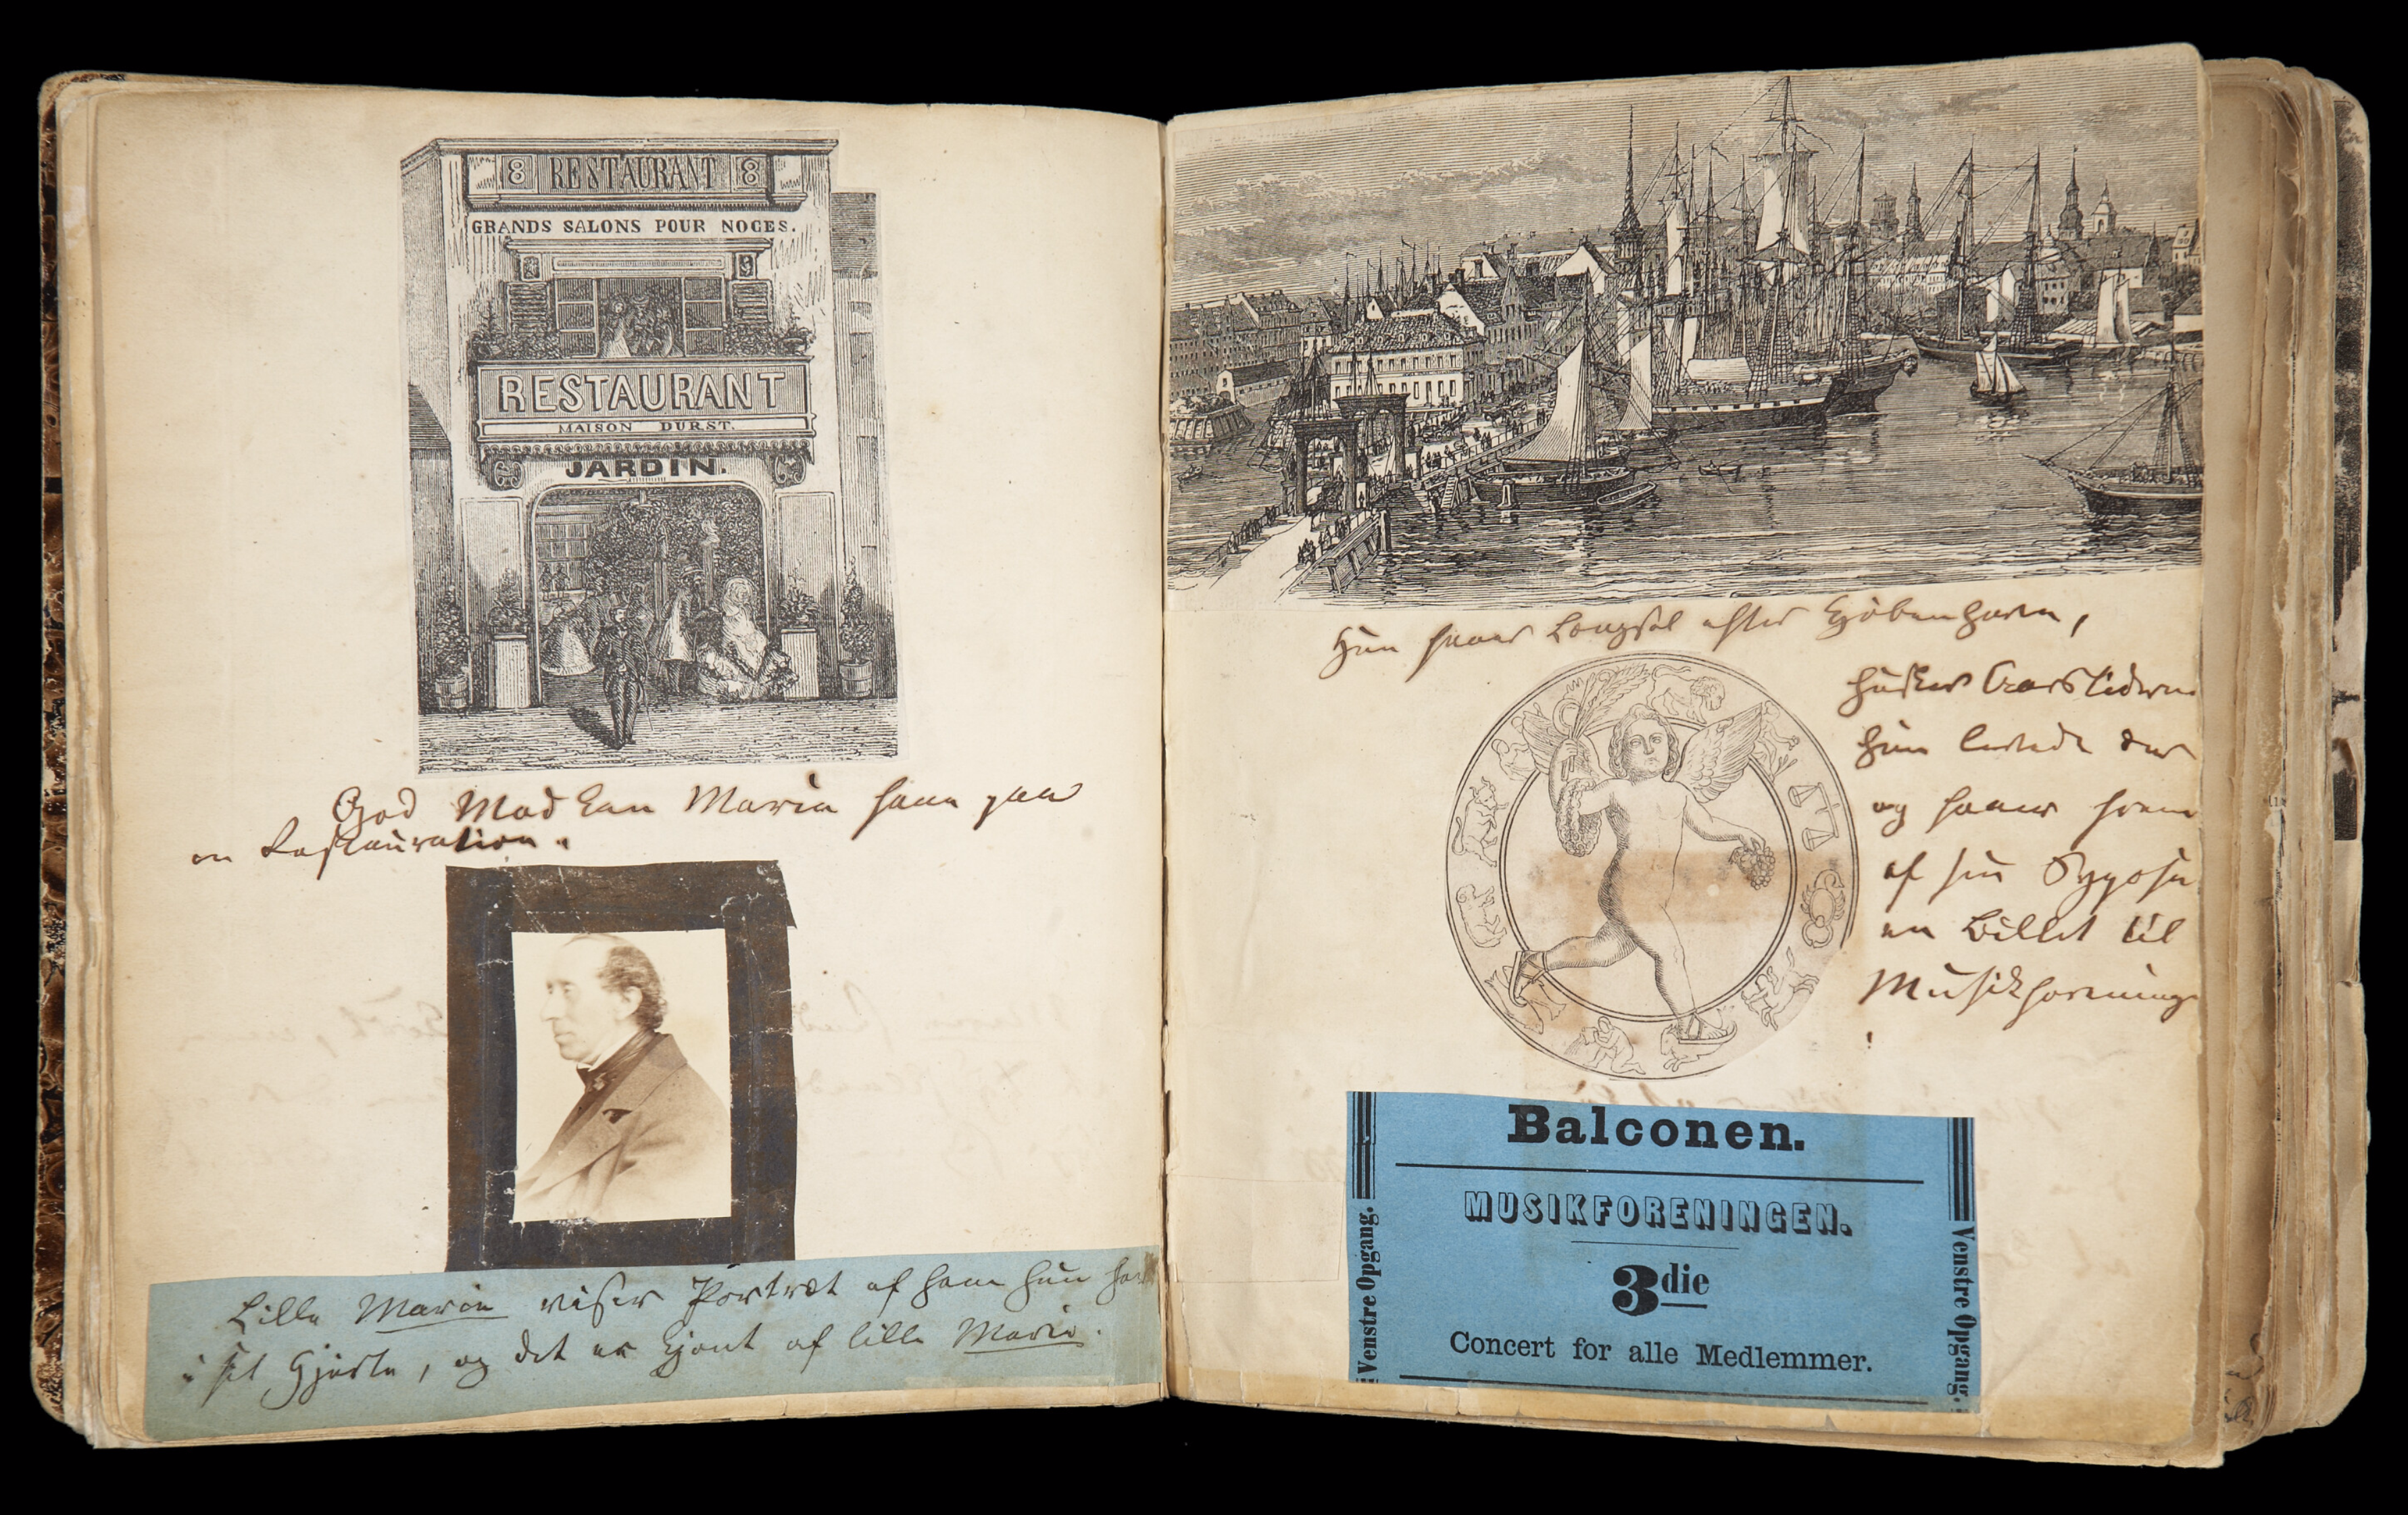 8 RESTAURANT 8
GRANDS SALONS POUR NOCES.
RESTAURANT
MAISON DURST.
JARDIN.
God Mad kan Marie faae paa
en Restauration.
Lille Marie viser Portræt af ham hun har
i sit Hjerte, og det er kjønt af lille Marie.
Hun faaer Længsel efter Kjøbenhavn,
husker Aarstiderne
hun levede der
og faaer frem
af sin Pose
en Billet til
Musikforening
!
Balconen.
MUSIKFORENINGEN.
3die
Concert for alle Medlemmer.
Venstre Opgang.
Venstre Opgang.